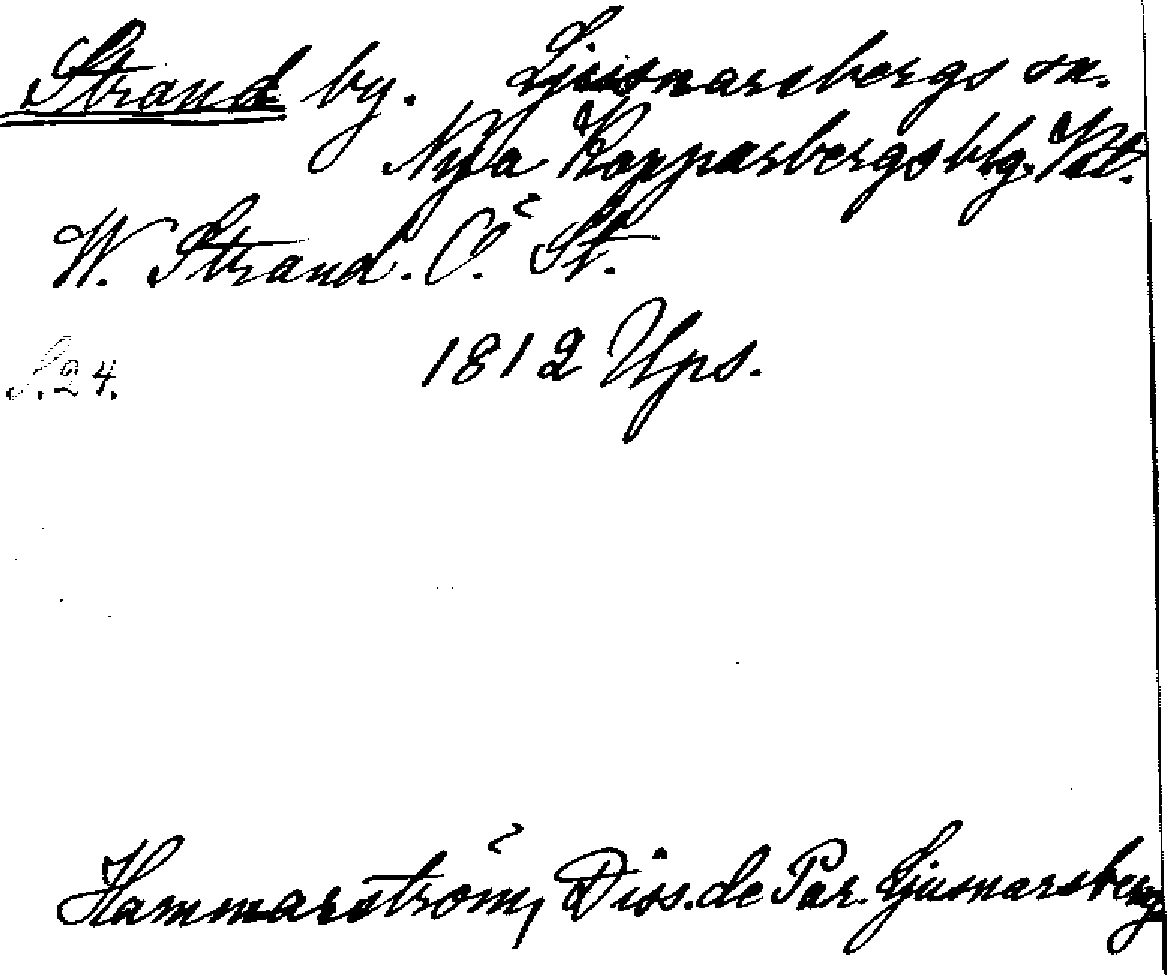 Strand by. Ljusnarsbergs sn.
Nya Kopparbergs blg. Vstl.
W. Strand. Ö. St.
S. 24. 1812 Ups.
Hammarström, Diss. de Par. Ljusnarsberg